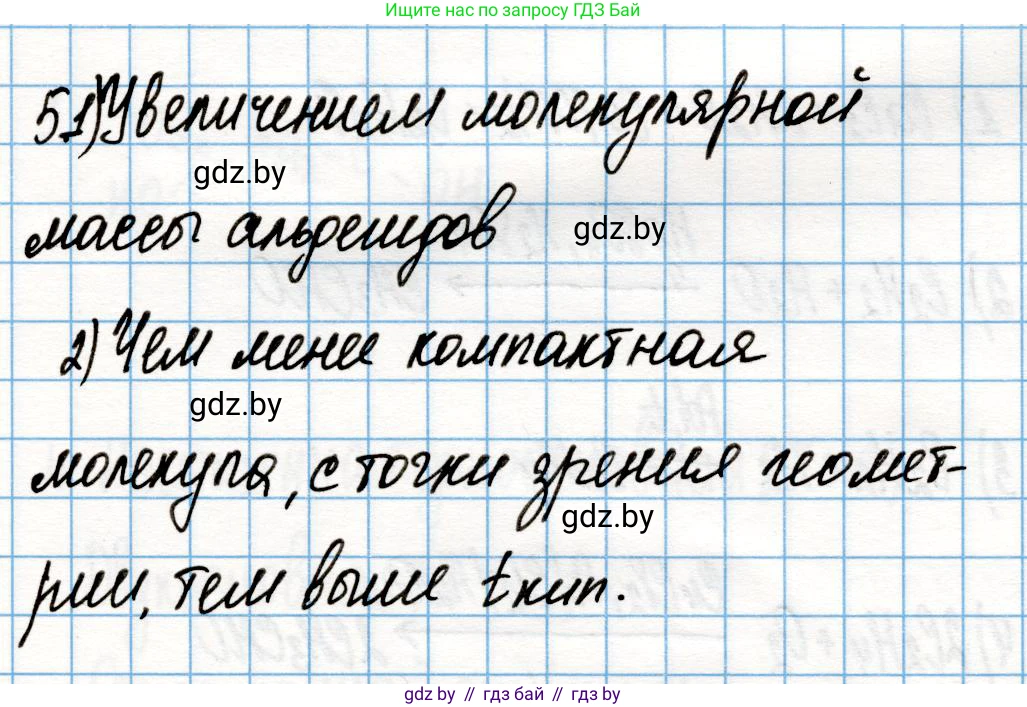 Ищите нас по запросу ГДЗ Бай
5.1) Увеличением молекулярной
gdz.by
массы альдегидов
gdz.by
2) Чем менее компактная
gdz.by
молекула, с точки зрения геомет-
gdz.by
рии, тем выше tкип.
gdz by // гдз бай // гдз by